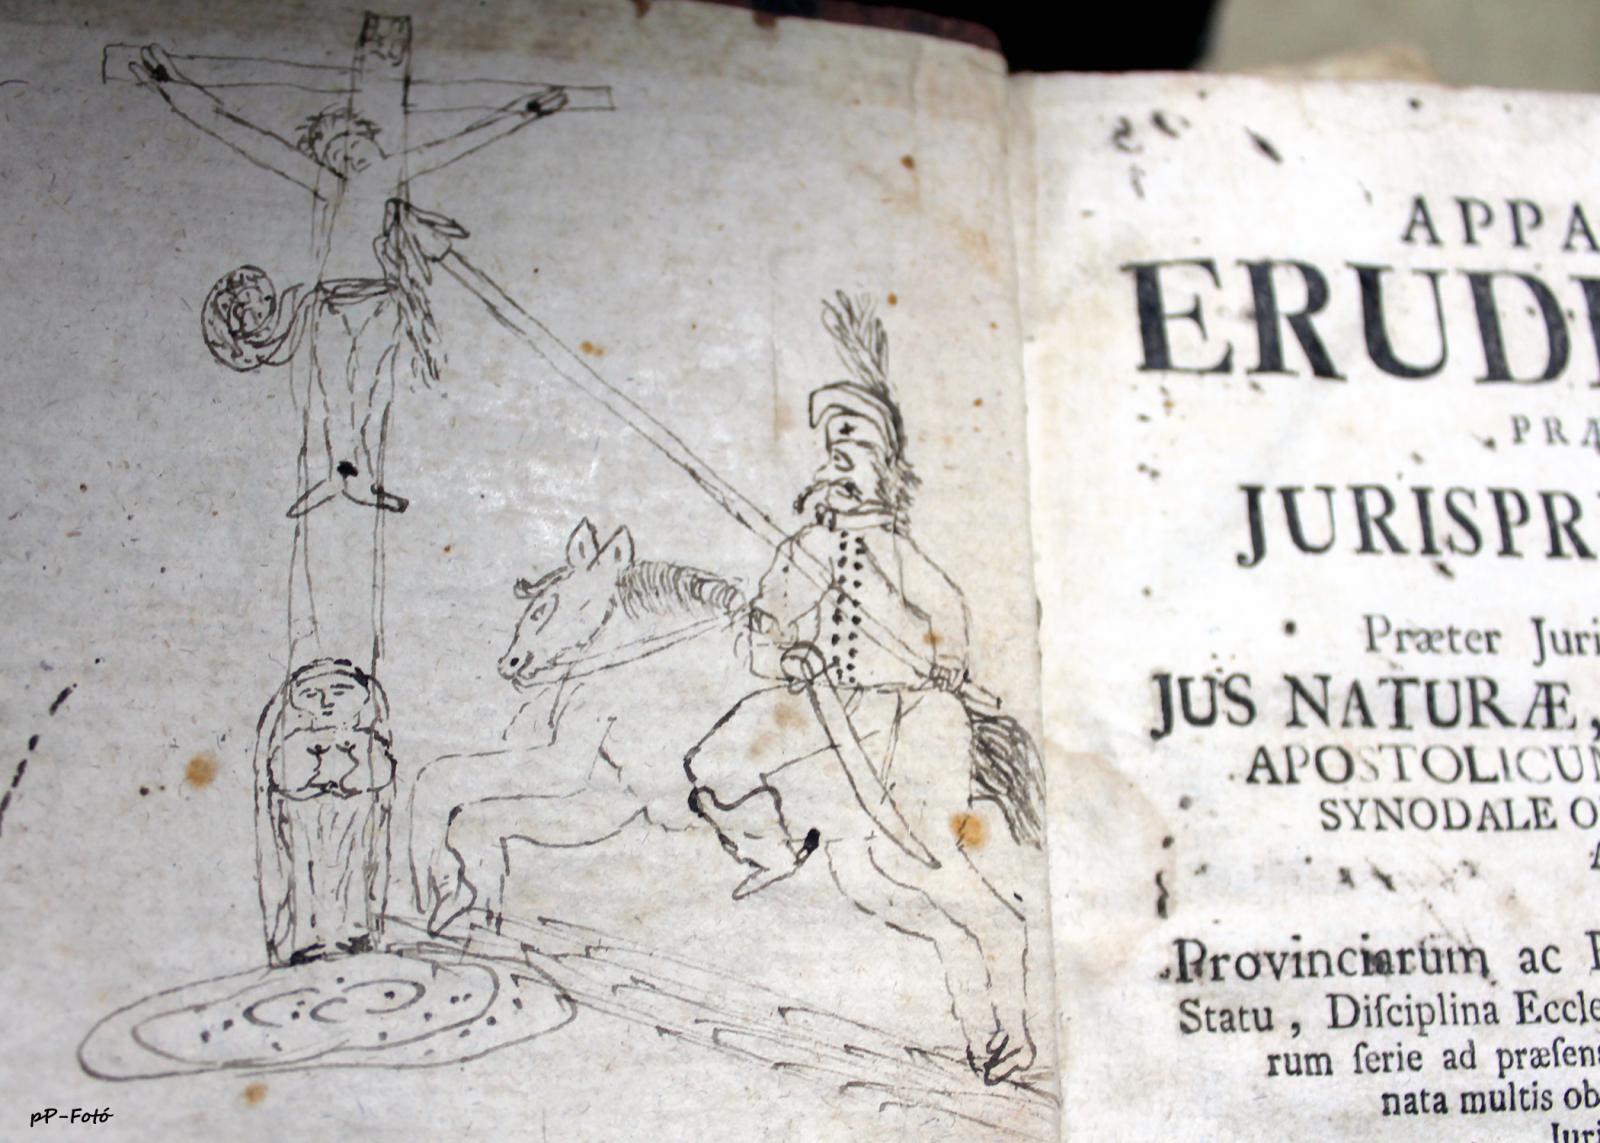 APPA
ERUDI
PRÆ
JURISPR
Præter Juri
JUS NATURÆ,
APOSTOLICUM
SYNODALE O
Provinciarum ac
Statu, Diſciplina Eccle
rum ſerie ad præſens
nata multis ob
Juri
pP-Fotó